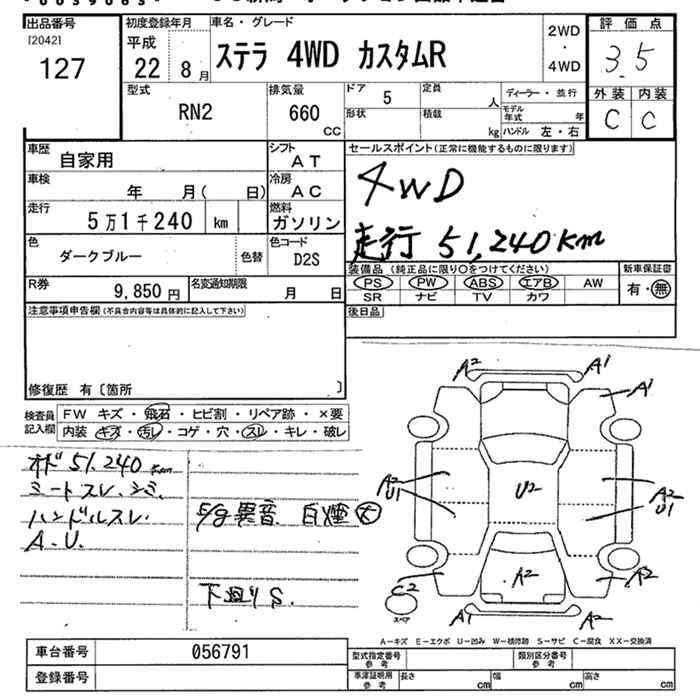 出品番号
[2042]
127
初度登録年月
平成
22 8月
車名・グレード
ステラ 4WD カスタムR
2WD
・
4WD
評価点
3.5
外装 内装
C C
型式
RN2
排気量
660
CC
ドア
5
定員
人
形状
積載
kg
ディーラー・並行
モデル年式 年
ハンドル 左・右
車歴
自家用
シフト
AT
車検
年 月( 日)
冷房
AC
走行
5万1千240 km
燃料
ガソリン
色
ダークブルー
色替
色コード
D2S
R券
9,850円
名変通知期限
月 日
セールスポイント(正常に機能するものに限ります)
4WD
走行 51,240km
装備品 (純正品に限り○をつけてください)
PS PW ABS エアB AW
SR ナビ TV カワ
新車保証書
有・無
後日品
注意事項申告欄(不具合内容等は具体的に記入して下さい)
修復歴 有〔箇所 〕
検査員
記入欄
FW キズ・飛石・ヒビ割・リペア跡・×要
内装 キズ・汚レ・コゲ・穴・スレ・キレ・破レ
オド51,240km
ミートスレ、シミ、
ハンドルスレ、
A.U.
異音 白煙 大
下廻りS.
A2
A1
A1
A2
U1
U2
A2
U1
C2
A2
A2
A1
A1
スペア
A−キズ E−エクボ U−凹み W−補修跡 S−サビ C−腐食 XX−交換済
車台番号
056791
登録番号
型式指定番号
参考
類別区分番号
参考
車庫証明用
参考
長さ
cm
幅
cm
高さ
cm